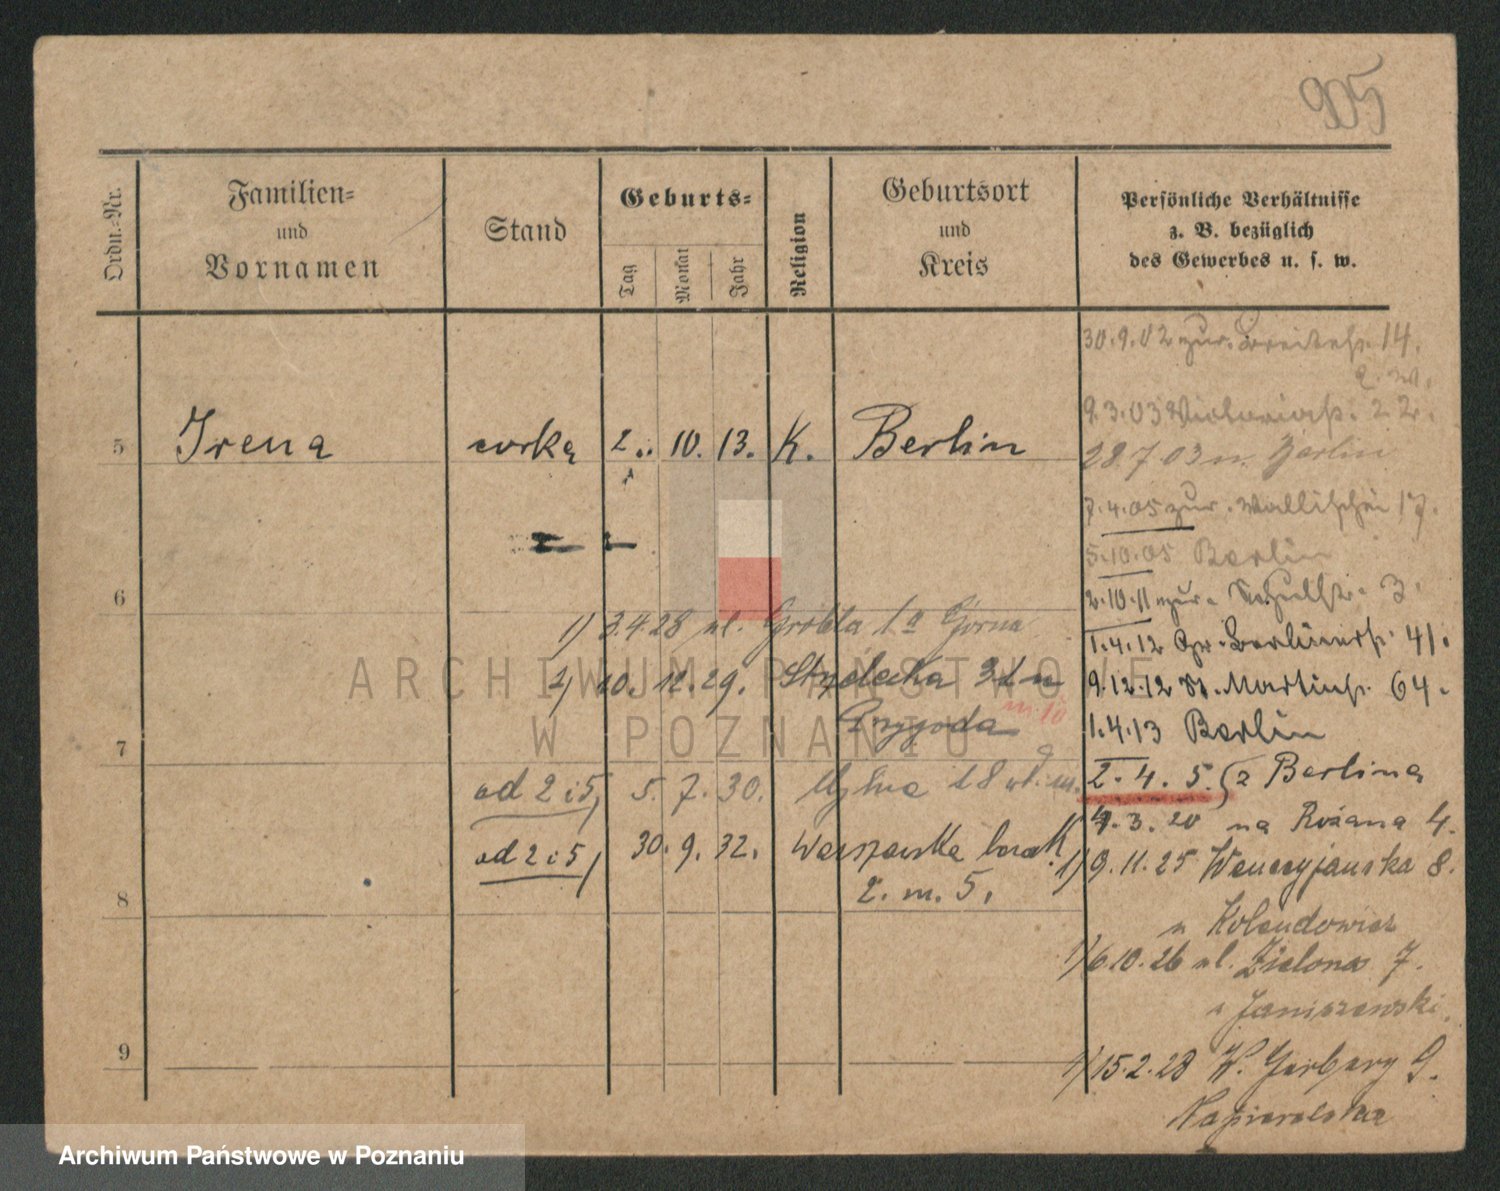 905
Ordn.-Nr.
Familien-
und
Vornamen
Stand
Geburts-
Tag
Monat
Jahr
Religion
Geburtsort
und
Kreis
Persönliche Verhältnisse
z. B. bezüglich
des Gewerbes u. s. w.
30.9.02 zur. Breitestr. 14.
9.3.03 Victoriastr. 22.
28.7.03 n. Berlin
5 Irena corka 2. 10. 13. K. Berlin
7.4.05 zur. Wallischei 17.
5.10.05 Berlin
2.10.11 zur. Schulstr. 3.
6
1) 3.4.28 ul. Grobla 1a Górna
1.4.12 Gr. Berlinerstr. 41.
2) 10. 12. 29. Strzelecka 31 u
m 10
9.12.12 St. Martinstr. 64.
Przygoda
1.4.13 Berlin
7
2.4.5. z Berlina
od 2 i 5) 5. 7. 30. 18 wł. m.
4.3.20 na Różana 4.
od 2 i 5) 30. 9. 32. Warszawska barak
2. m. 5.
1) 9.11.25 Wenecyjanska 8.
8
u Kolendowicz
1) 6.10.26 ul. Zielona 7.
u Janiszewski
9
1) 15.2.28 W. Garbary 9.
Napieralska
ARCHIWUM PAŃSTWOWE
W POZNANIU
Archiwum Państwowe w Poznaniu